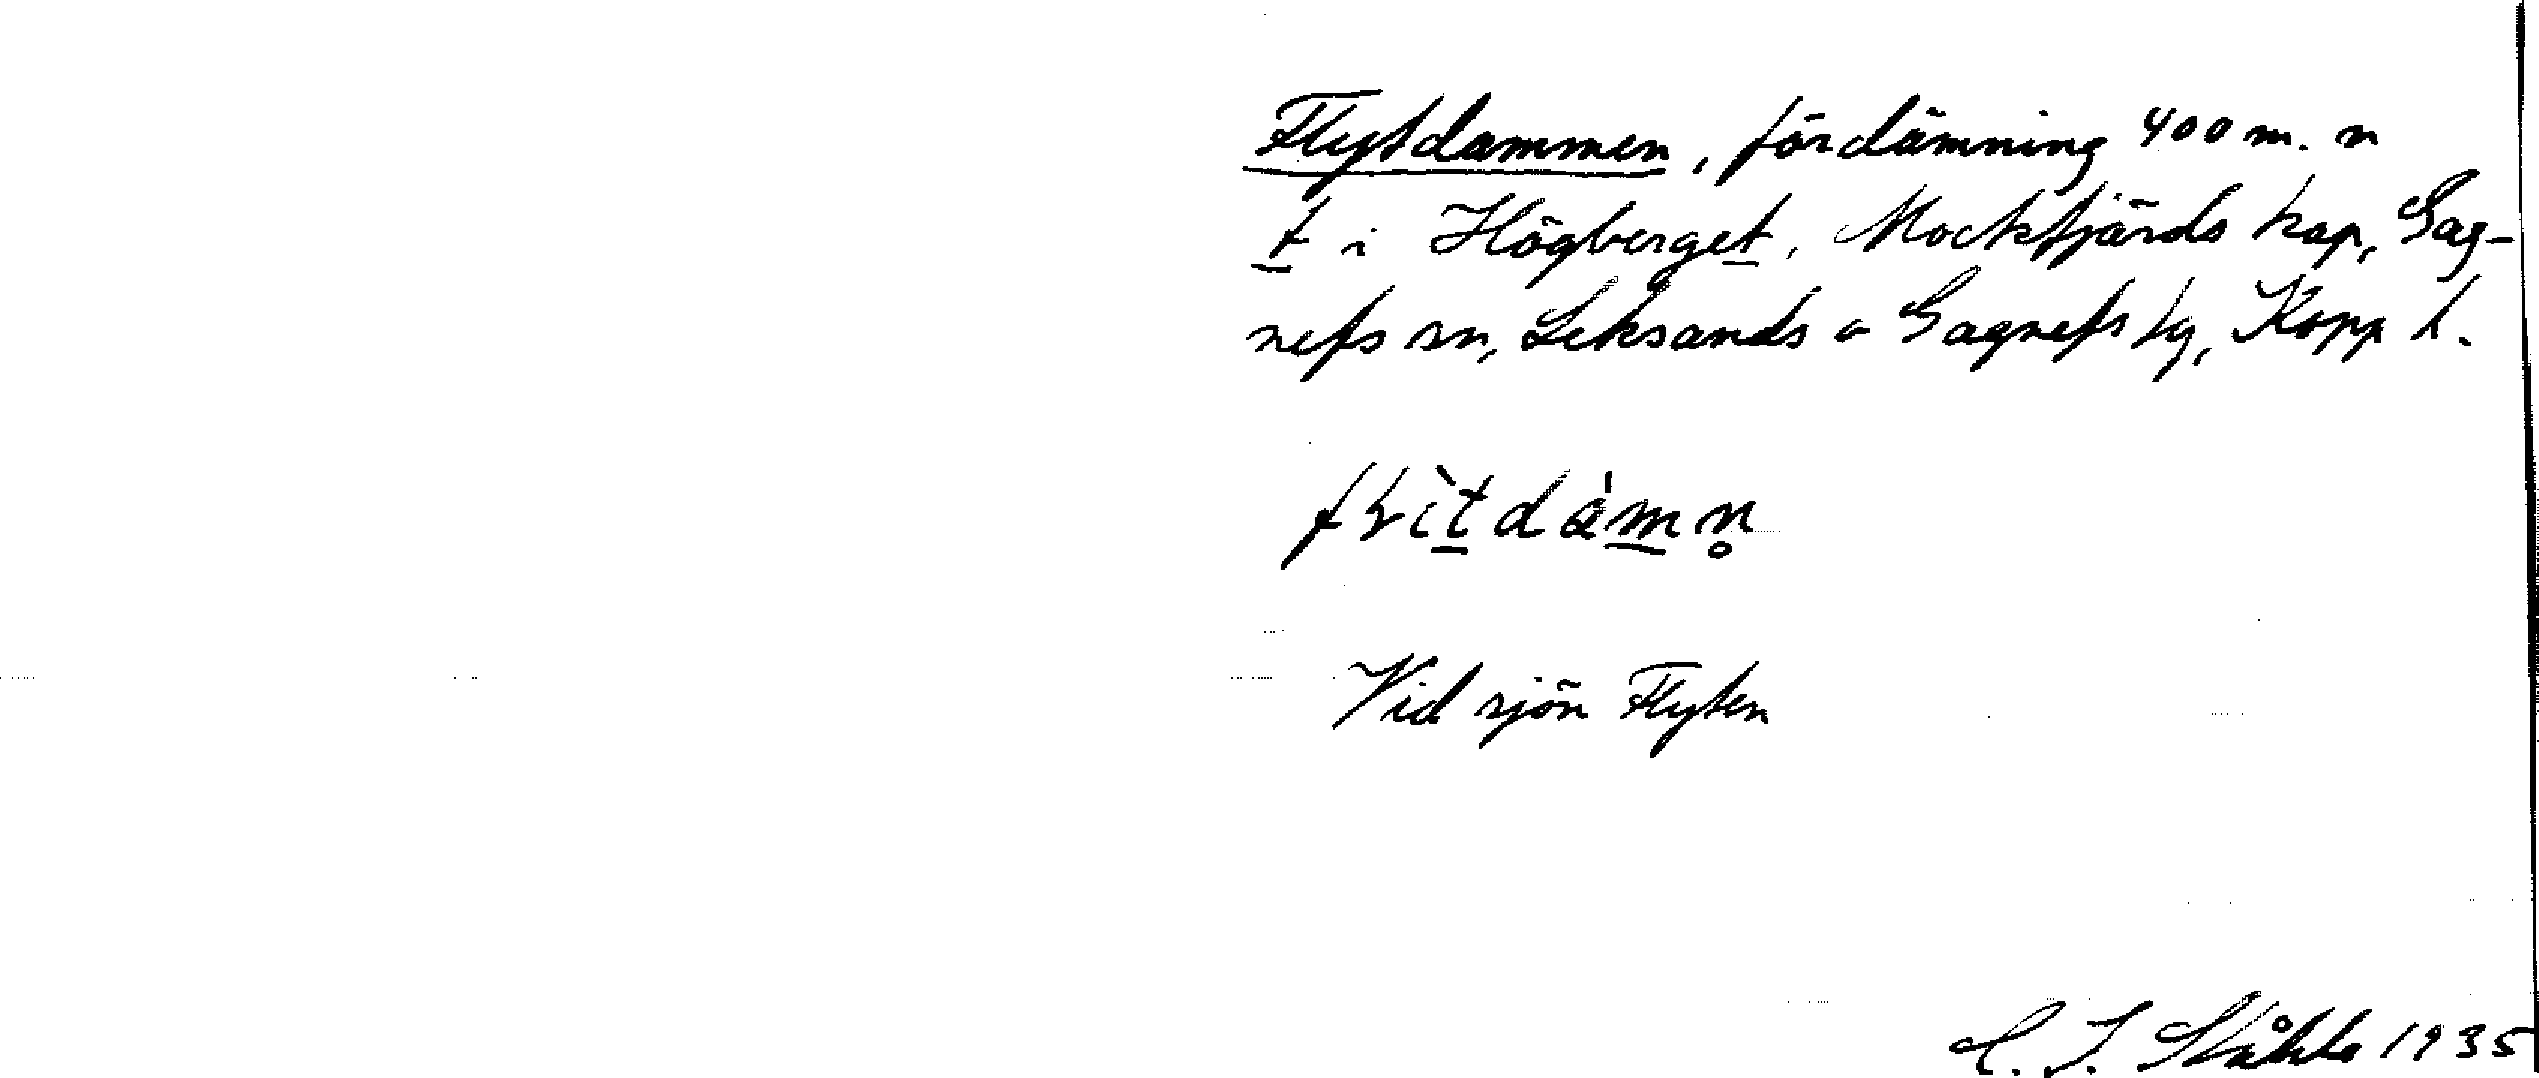 Flytdammen, fördämning 400 m. n
t i Högberget, Mockfjärds kap, Gag-
nefs sn, Leksands o Gagnefs tg, Kopp l.
Vid sjön Flyten
C. I. Ståhle 1935